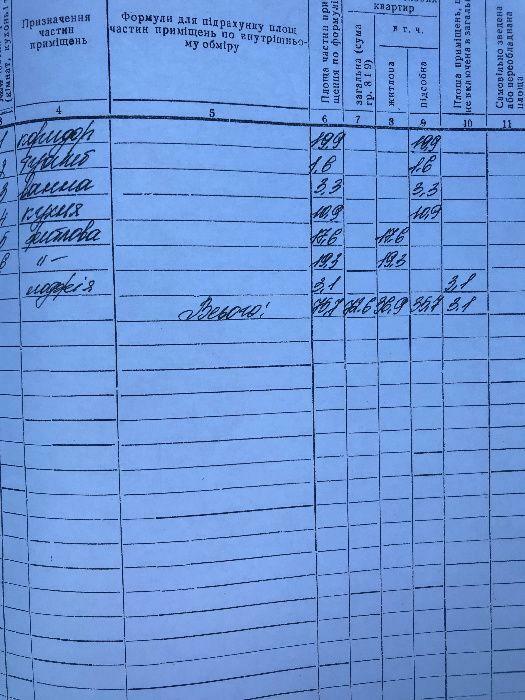 (кімнат, кухонь і т
Призначення частин приміщень
Формули для підрахунку площ частин приміщень по внутрішньому обміру
Площа частин при
щення по формулі
квартир
загальна (сума гр. 8 і 9)
в т. ч.
житлова
підсобна
Площа приміщень,
не включена в загаль
Самовільно зведена або переобладнана площа
4 5 6 7 8 9 10 11
1 коридор 19,9 19,9
2 туалет 1,6 1,6
3 ванна 3,3 3,3
4 кухня 10,9 10,9
5 житлова 17,6 17,6
6 "— 19,3 19,3
лоджія 3,1 3,1
Всього: 75,7 72,6 36,9 35,7 3,1